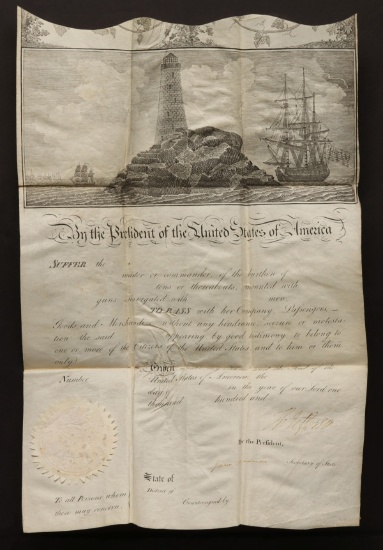 By the President of the United States of America
SUFFER the
master or commander of the burthen of
tons or thereabouts mounted with
guns navigated with men
TO PASS with her Company Passengers,
Goods and Merchandize without any hindrance seizure or molesta-
tion the said appearing by good testimony to belong to
one or more of the Citizens of the United States and to him or them
only.
Given
Number
United States of America the
day of in the year of our Lord one
thousand hundred and
By the President,
Secretary of State
State of
District of
Countersigned by
To all Persons whom
these may concern.